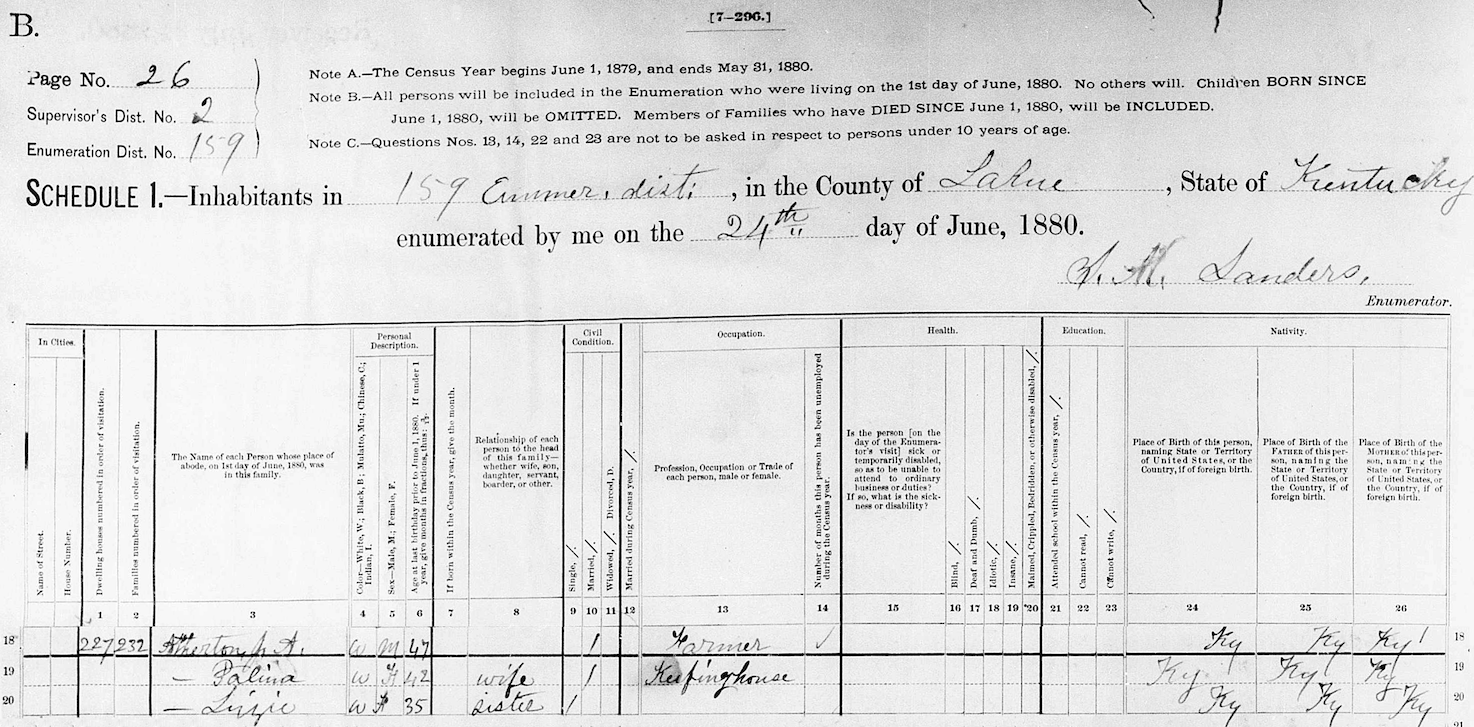 B.
[7-296.]
Page No. 26
Supervisor's Dist. No. 2
Enumeration Dist. No. 159
Note A.—The Census Year begins June 1, 1879, and ends May 31, 1880.
Note B.—All persons will be included in the Enumeration who were living on the 1st day of June, 1880. No others will. Children BORN SINCE
June 1, 1880, will be OMITTED. Members of Families who have DIED SINCE June 1, 1880, will be INCLUDED.
Note C.—Questions Nos. 13, 14, 22 and 23 are not to be asked in respect to persons under 10 years of age.
SCHEDULE 1.—Inhabitants in 159 Enumer. dist: , in the County of LaRue , State of Kentucky
enumerated by me on the 24th day of June, 1880.
M. Sanders,
Enumerator.
In Cities.
Name of Street.
House Number.
Dwelling houses numbered in order of visitation.
Families numbered in order of visitation.
The Name of each Person whose place of
abode, on 1st day of June, 1880, was
in this family.
Personal
Description.
Color—White, W.; Black, B; Mulatto, Mu.; Chinese, C.;
Indian, I.
Sex—Male, M.; Female, F.
Age at last birthday prior to June 1, 1880. If under 1
year, give months in fractions, thus: 3/12.
If born within the Census year, give the month.
Relationship of each
person to the head
of this family—
whether wife, son,
daughter, servant,
boarder, or other.
Civil
Condition.
Single, /.
Married, /.
Widowed, /. Divorced, D.
Married during Census year, /.
Occupation.
Profession, Occupation or Trade of
each person, male or female.
Number of months this person has been unemployed
during the Census year.
Health.
Is the person [on the
day of the Enumera-
tor's visit] sick or
temporarily disabled,
so as to be unable to
attend to ordinary
business or duties?
If so, what is the sick-
ness or disability?
Blind, /.
Deaf and Dumb, /.
Idiotic, /.
Insane, /.
Maimed, Crippled, Bedridden, or otherwise disabled, /.
Education.
Attended school within the Census year, /.
Cannot read, /.
Cannot write, /.
Nativity.
Place of Birth of this person,
naming State or Territory
of United States, or the
Country, if of foreign birth.
Place of Birth of the
FATHER of this per-
son, naming the
State or Territory
of United States, or
the Country, if of
foreign birth.
Place of Birth of the
MOTHER of this per-
son, naming the
State or Territory
of United States, or
the Country, if of
foreign birth.
1 2 3 4 5 6 7 8 9 10 11 12 13 14 15 16 17 18 19 20 21 22 23 24 25 26
18 227 232 Atherton, A. W M 47 / Farmer ✓ Ky Ky Ky 18
19 — Palina W F 42 wife / Keeping house Ky Ky Ky 19
20 — Lizzie W F 35 sister / Ky Ky Ky 20
21